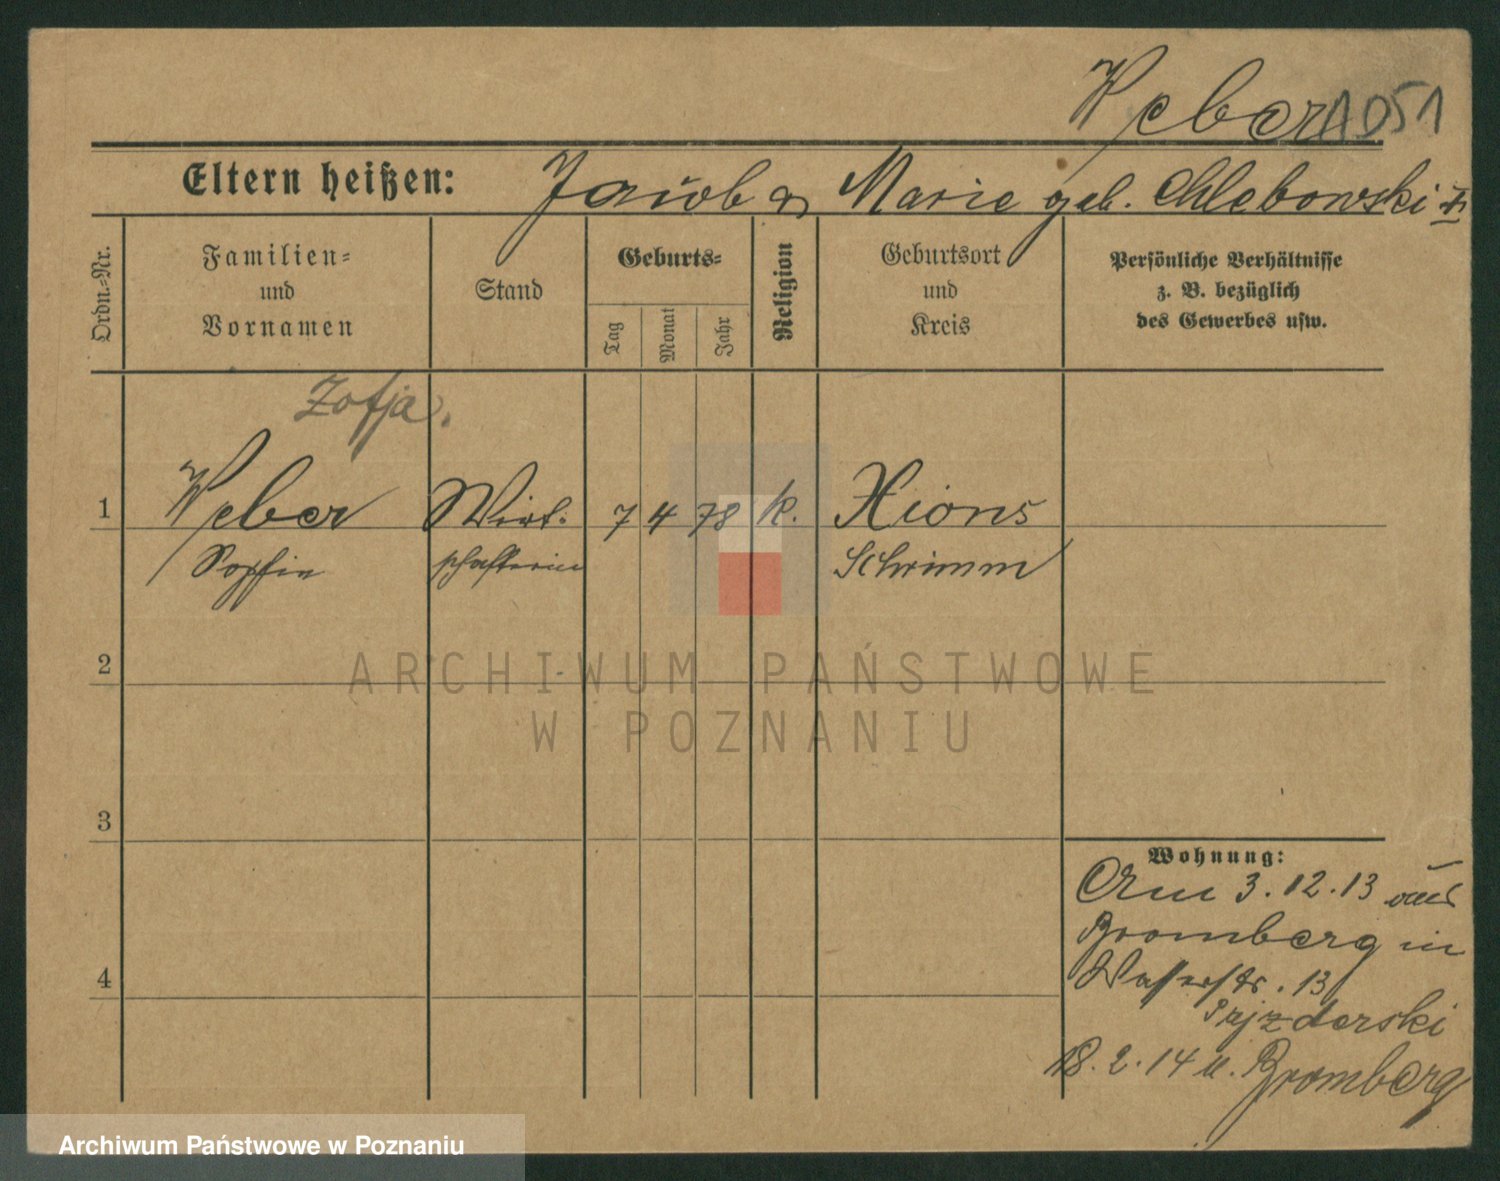 Weber 1051
Eltern heißen: Jacob & Marie geb. Chlebowski
Ordn.-Nr.
Familien-
und
Vornamen
Stand
Geburts-
Tag
Monat
Jahr
Religion
Geburtsort
und
Kreis
Persönliche Verhältnisse
z. B. bezüglich
des Gewerbes usw.
Zofja.
1 Weber Wirt- 7 4 78 k. Xions
Sophie schafterin Schrimm
2
ARCHIWUM PAŃSTWOWE
W POZNANIU
3
Wohnung:
Am 3.12.13 aus
Bromberg in
4 Wasserstr. 13
18.2.14 n. Bromberg
Archiwum Państwowe w Poznaniu